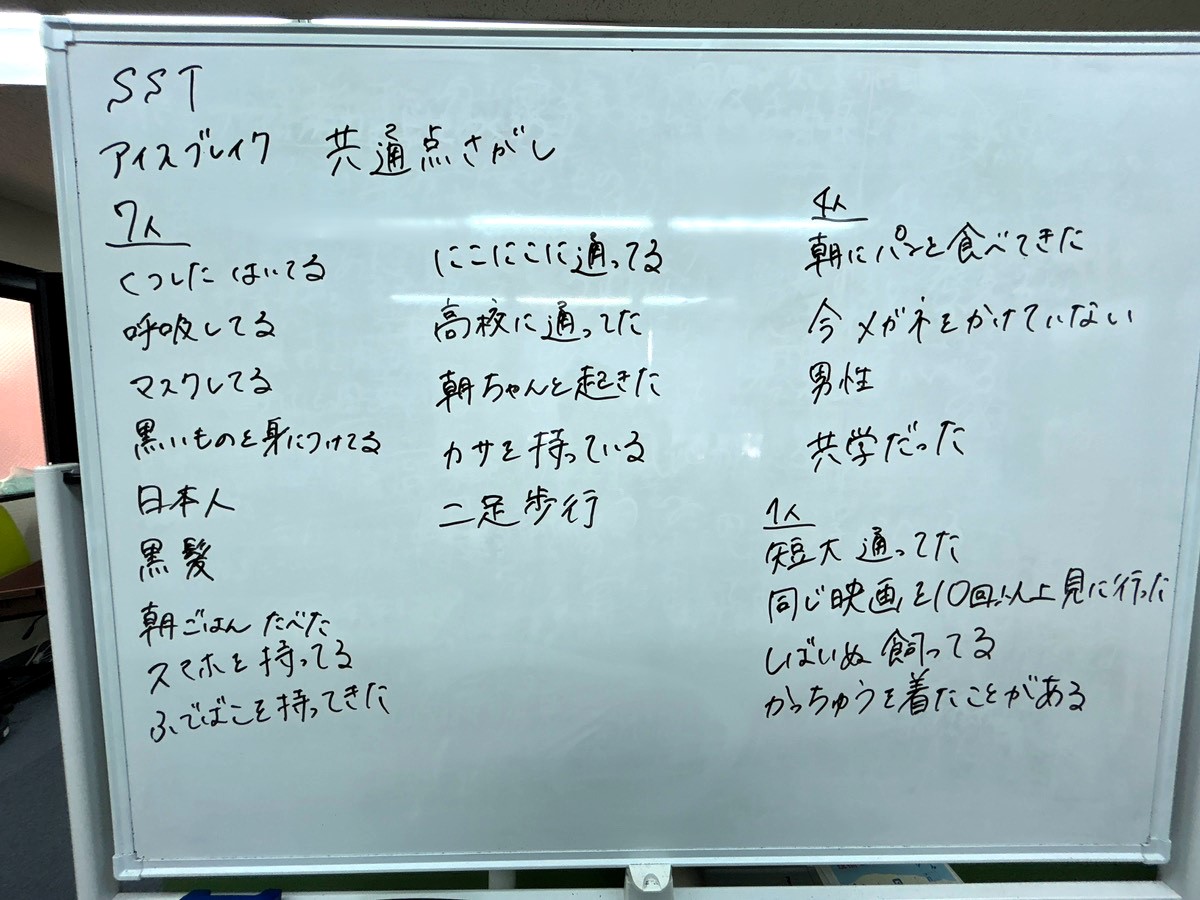 SST
アイスブレイク 共通点さがし
7人
くつした はいてる
呼吸してる
マスクしてる
黒いものを身につけてる
日本人
黒髪
朝ごはん たべた
スマホを持ってる
ふでばこを持ってきた
にこにこに通ってる
高校に通ってた
朝ちゃんと起きた
カサを持っている
二足歩行
4人
朝にパンを食べてきた
今メガネをかけていない
男性
共学だった
1人
短大 通ってた
同じ映画を10回以上見に行った
しばいぬ 飼ってる
かっちゅうを着たことがある